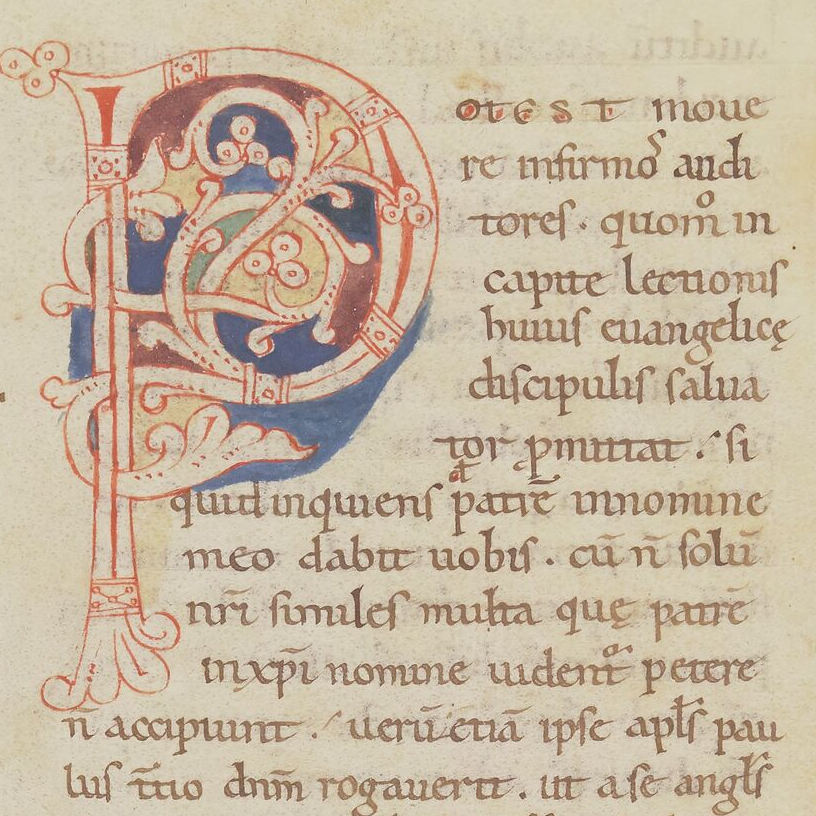 POTEST moue
re infirmoꝰ audi
tores · quom̊ in
capite lectionis
huius euangelicę
discipulis salua
tor ꝓmittat · si
quid inquiens petieritis patrē in nomine
meo dabit uobis · cū n̄ solū
nr̄i similes multa quę patrē
in xp̄i nomine uident᷑ petere
n̄ accipiunt · uerū etiā ipse apl̄s pau
lus t̄tio dn̄m rogauerit · ut a se angl̄s